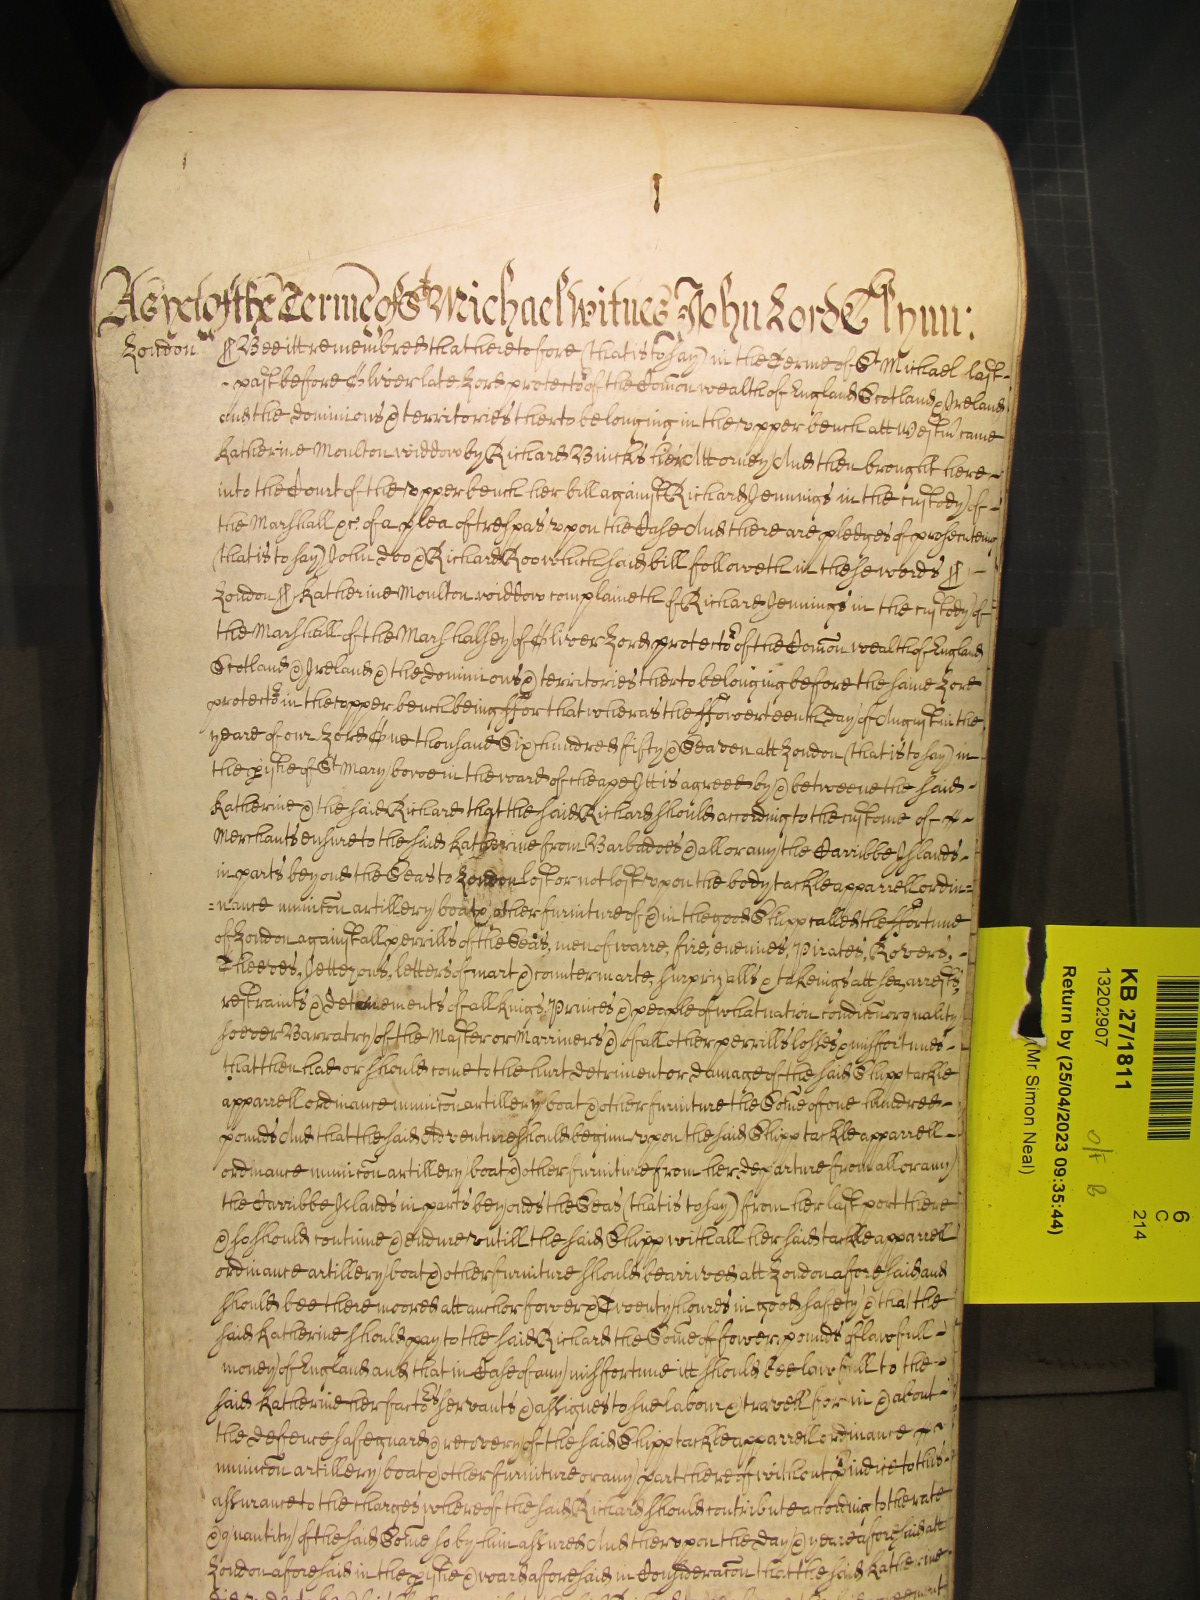 As yet of the Terme of St Michael witnes John Lord Glynn:
London ¶ Bee itt remembred that heretofore (that is to say) in the Terme of St Michael last-
- past before Oliver late Lord protector of the Comon wealth of England Scotland & Ireland
and the dominions & territories therto belonging in the upper bench att Westm came
Katherine Moulton widdow by Richard Buncks her Attorney And then brought here-
into the Court of the upper bench her bill against Richard Jennings in the custody of-
the Marshall &c of a plea of trespas upon the Case And there are pledges of prosecuteing
(that is to say) John doo & Richard Roo which said bill followeth in these words ¶ -
London ¶ Katherine Moulton widdow complaineth of Richard Jennings in the custody of
the Marshall of the Marshalsey of Oliver Lord protector of the Comon wealth of England
Scotland & Ireland & the dominions & territories therto belonging before the same Lord
protector in the upper bench being ffor that wheras the ffowerteenth day of August in the
yeare of our Lord One thousand Six hundred fifty & Seaven att London (that is to say) in
the pishe of St Mary bowe in the ward of cheape Itt is agreed by & betweene the said-
Katherine & the said Richard that the said Richard should according to the custome of -
Merchants ensure to the said Katherine from Barbadoes & all or any the Carribbe Islands-
in parts beyond the Seas to London lost or not lost upon the body tackle apparrell ordin=
=nance municon artillery boat & other furniture of & in the good Shipp called the ffortune
of London against all perrills of the Seas, men of warre, fire, enemies, Pirates, Rovers, -
Theeves, Jettezons, letters of mart & countermarte, surprizalls & takeings att sea, arrests,
restraints & detainements of all kings, Princes & people of what nation condicon or quality
soever Barratry of the Master or Marriners & of all other perrills losses & missfortunes-
that then had or should come to the hurt detriment or damage of the said Shipp tackle
apparrell ordinance municon artillery boat & other furniture the Some of one hundred-
pounds And that the said Adventure should beginn upon the said Shipp tackle apparrell-
ordinance municon artillery boat & other furniture from her departure from all or any
the Carribbe Islands in parts beyonds the Seas (that is to say) from her last port there
& so should continue & endure untill the said Shipp with all her said tackle apparrell
ordinance artillery boat & other furniture should be arrived att London aforesaid and
should bee there moored att anchor fower & Twenty houres in good safety & that the
said Katherine should pay to the said Richard the Some of fower pounds of lawfull-
money of England and that in Case of any missfortune itt should bee lawfull to the-
said Katherine her factors servants & assignes to sue labour & travell for in & about-
the defence safeguard & recovery of the said Shipp tackle apparrell ordinance
municon artillery boat & other furniture or any part thereof without pjudice to this-
assurance to the charges whereof the said Richard should contribute according to the rate
& quantity of the said Some so by him assured And therupon the day & yeare aforesaid att
London aforesaid in the pishe & ward aforesaid in Consideracon that the said Katherine
KB 27/1811
13202907
Return by (25/04/2023 09:35:44)
(Mr Simon Neal)
6
C
214